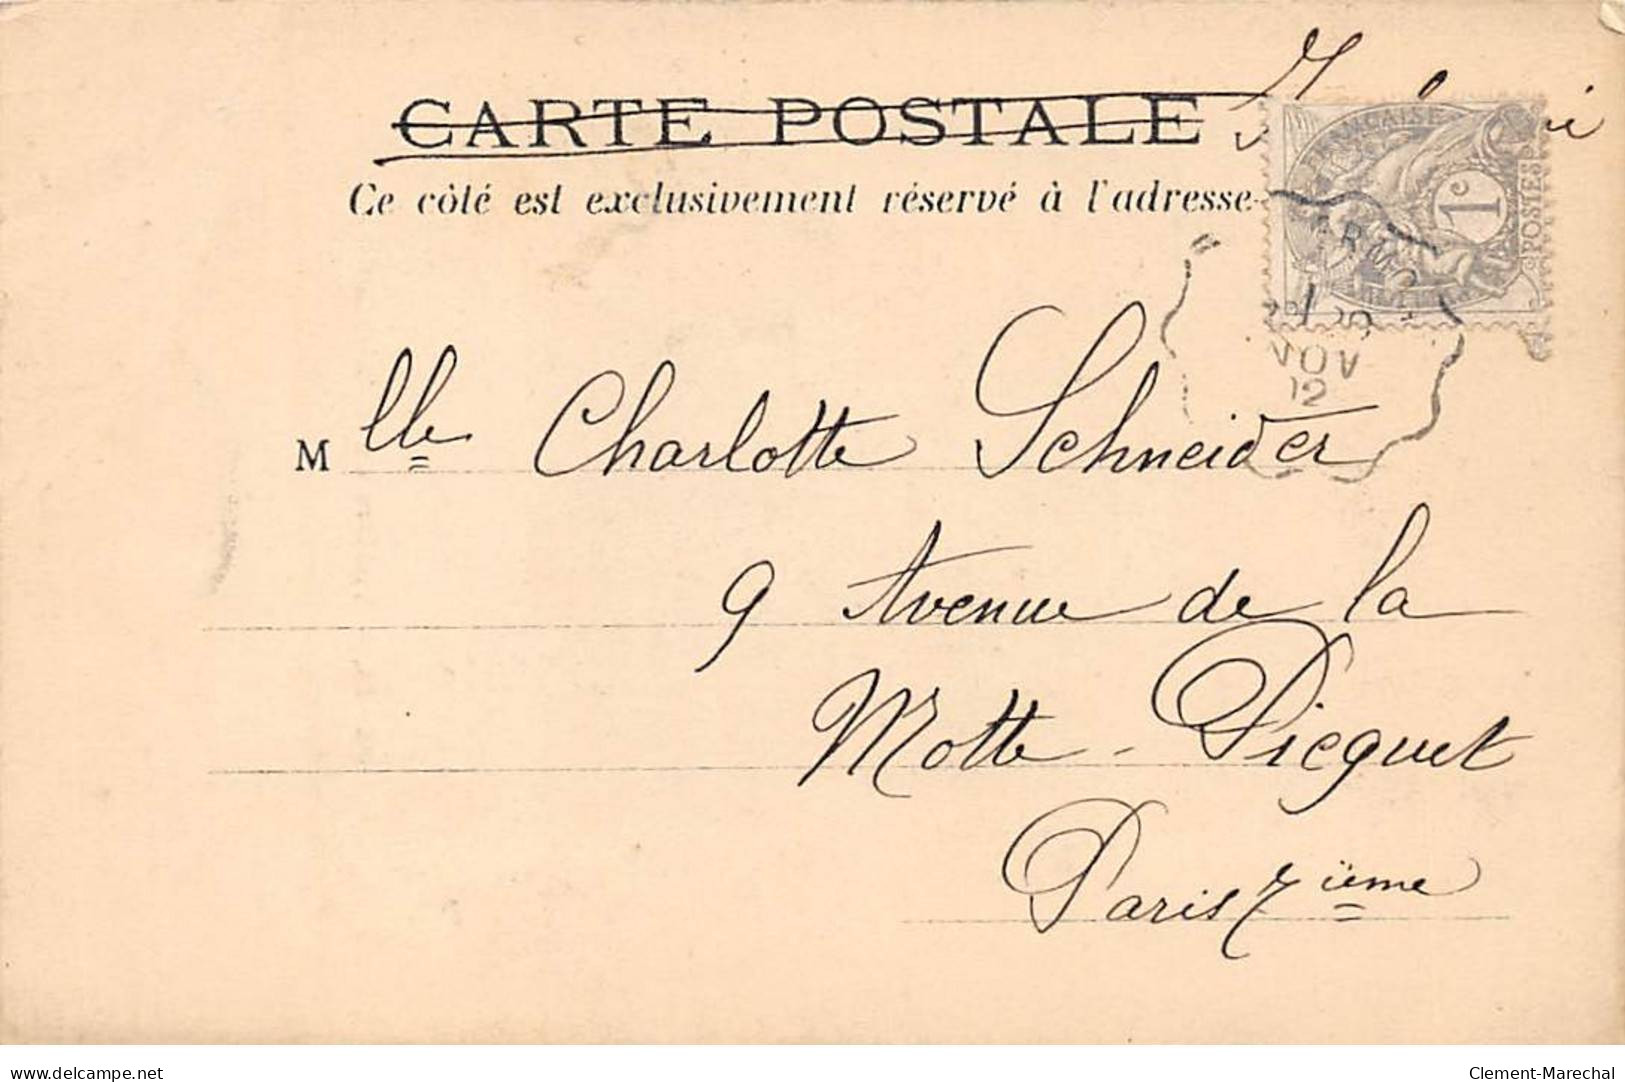 CARTE POSTALE
Ce côté est exclusivement réservé à l'adresse
FRANÇAISE
1c
POSTES
NOV
02
Mlle Charlotte Schneider
9 Avenue de la
Motte-Picquet
Paris 7ième
delcampe.net
Clement-Marechal